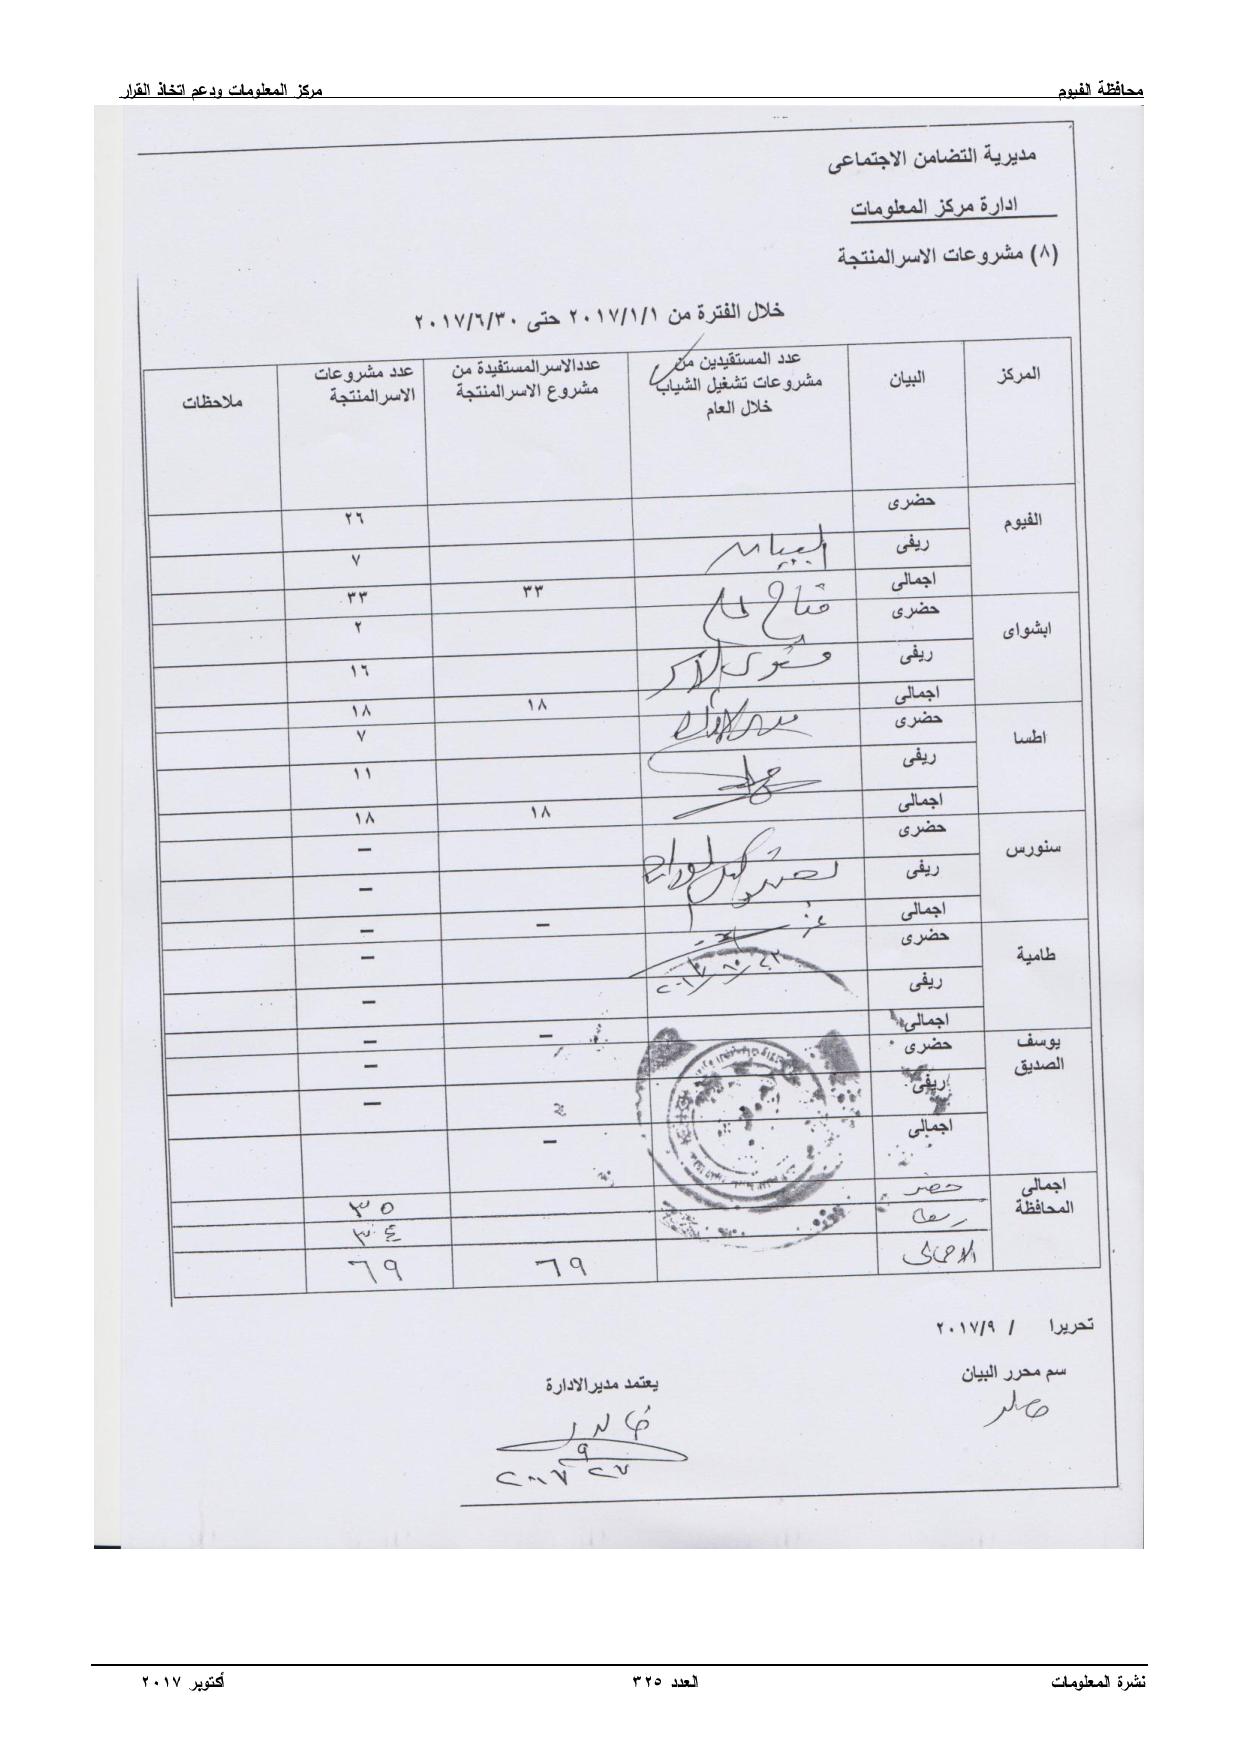 محافظة الفيوم
مركز المعلومات ودعم اتخاذ القرار
مديرية التضامن الاجتماعى
ادارة مركز المعلومات
(٨) مشروعات الاسرالمنتجة
خلال الفترة من ٢٠١٧/١/١ حتى ٢٠١٧/٦/٣٠
المركز البيان عدد المستفيدين من مشروعات تشغيل الشباب خلال العام عددالاسرالمستفيدة من مشروع الاسرالمنتجة عدد مشروعات الاسرالمنتجة ملاحظات
الفيوم حضرى ٢٦
ريفى البيان ٧
اجمالى ٣٣ ٣٣
ابشواى حضرى ٢
ريفى ١٦
اجمالى ١٨ ١٨
اطسا حضرى ٧
ريفى ١١
اجمالى ١٨ ١٨
سنورس حضرى –
ريفى –
اجمالى – –
طامية حضرى –
ريفى –
اجمالى – –
يوسف الصديق حضرى –
ريفى –
اجمالى –
اجمالى المحافظة حضر ٣٥
ريف ٣٤
الاجمالى ٦٩ ٦٩
تحريرا / ٢٠١٧/٩
سم محرر البيان
يعتمد مديرالادارة
خالد
نشرة المعلومات
العدد ٣٢٥
أكتوبر ٢٠١٧